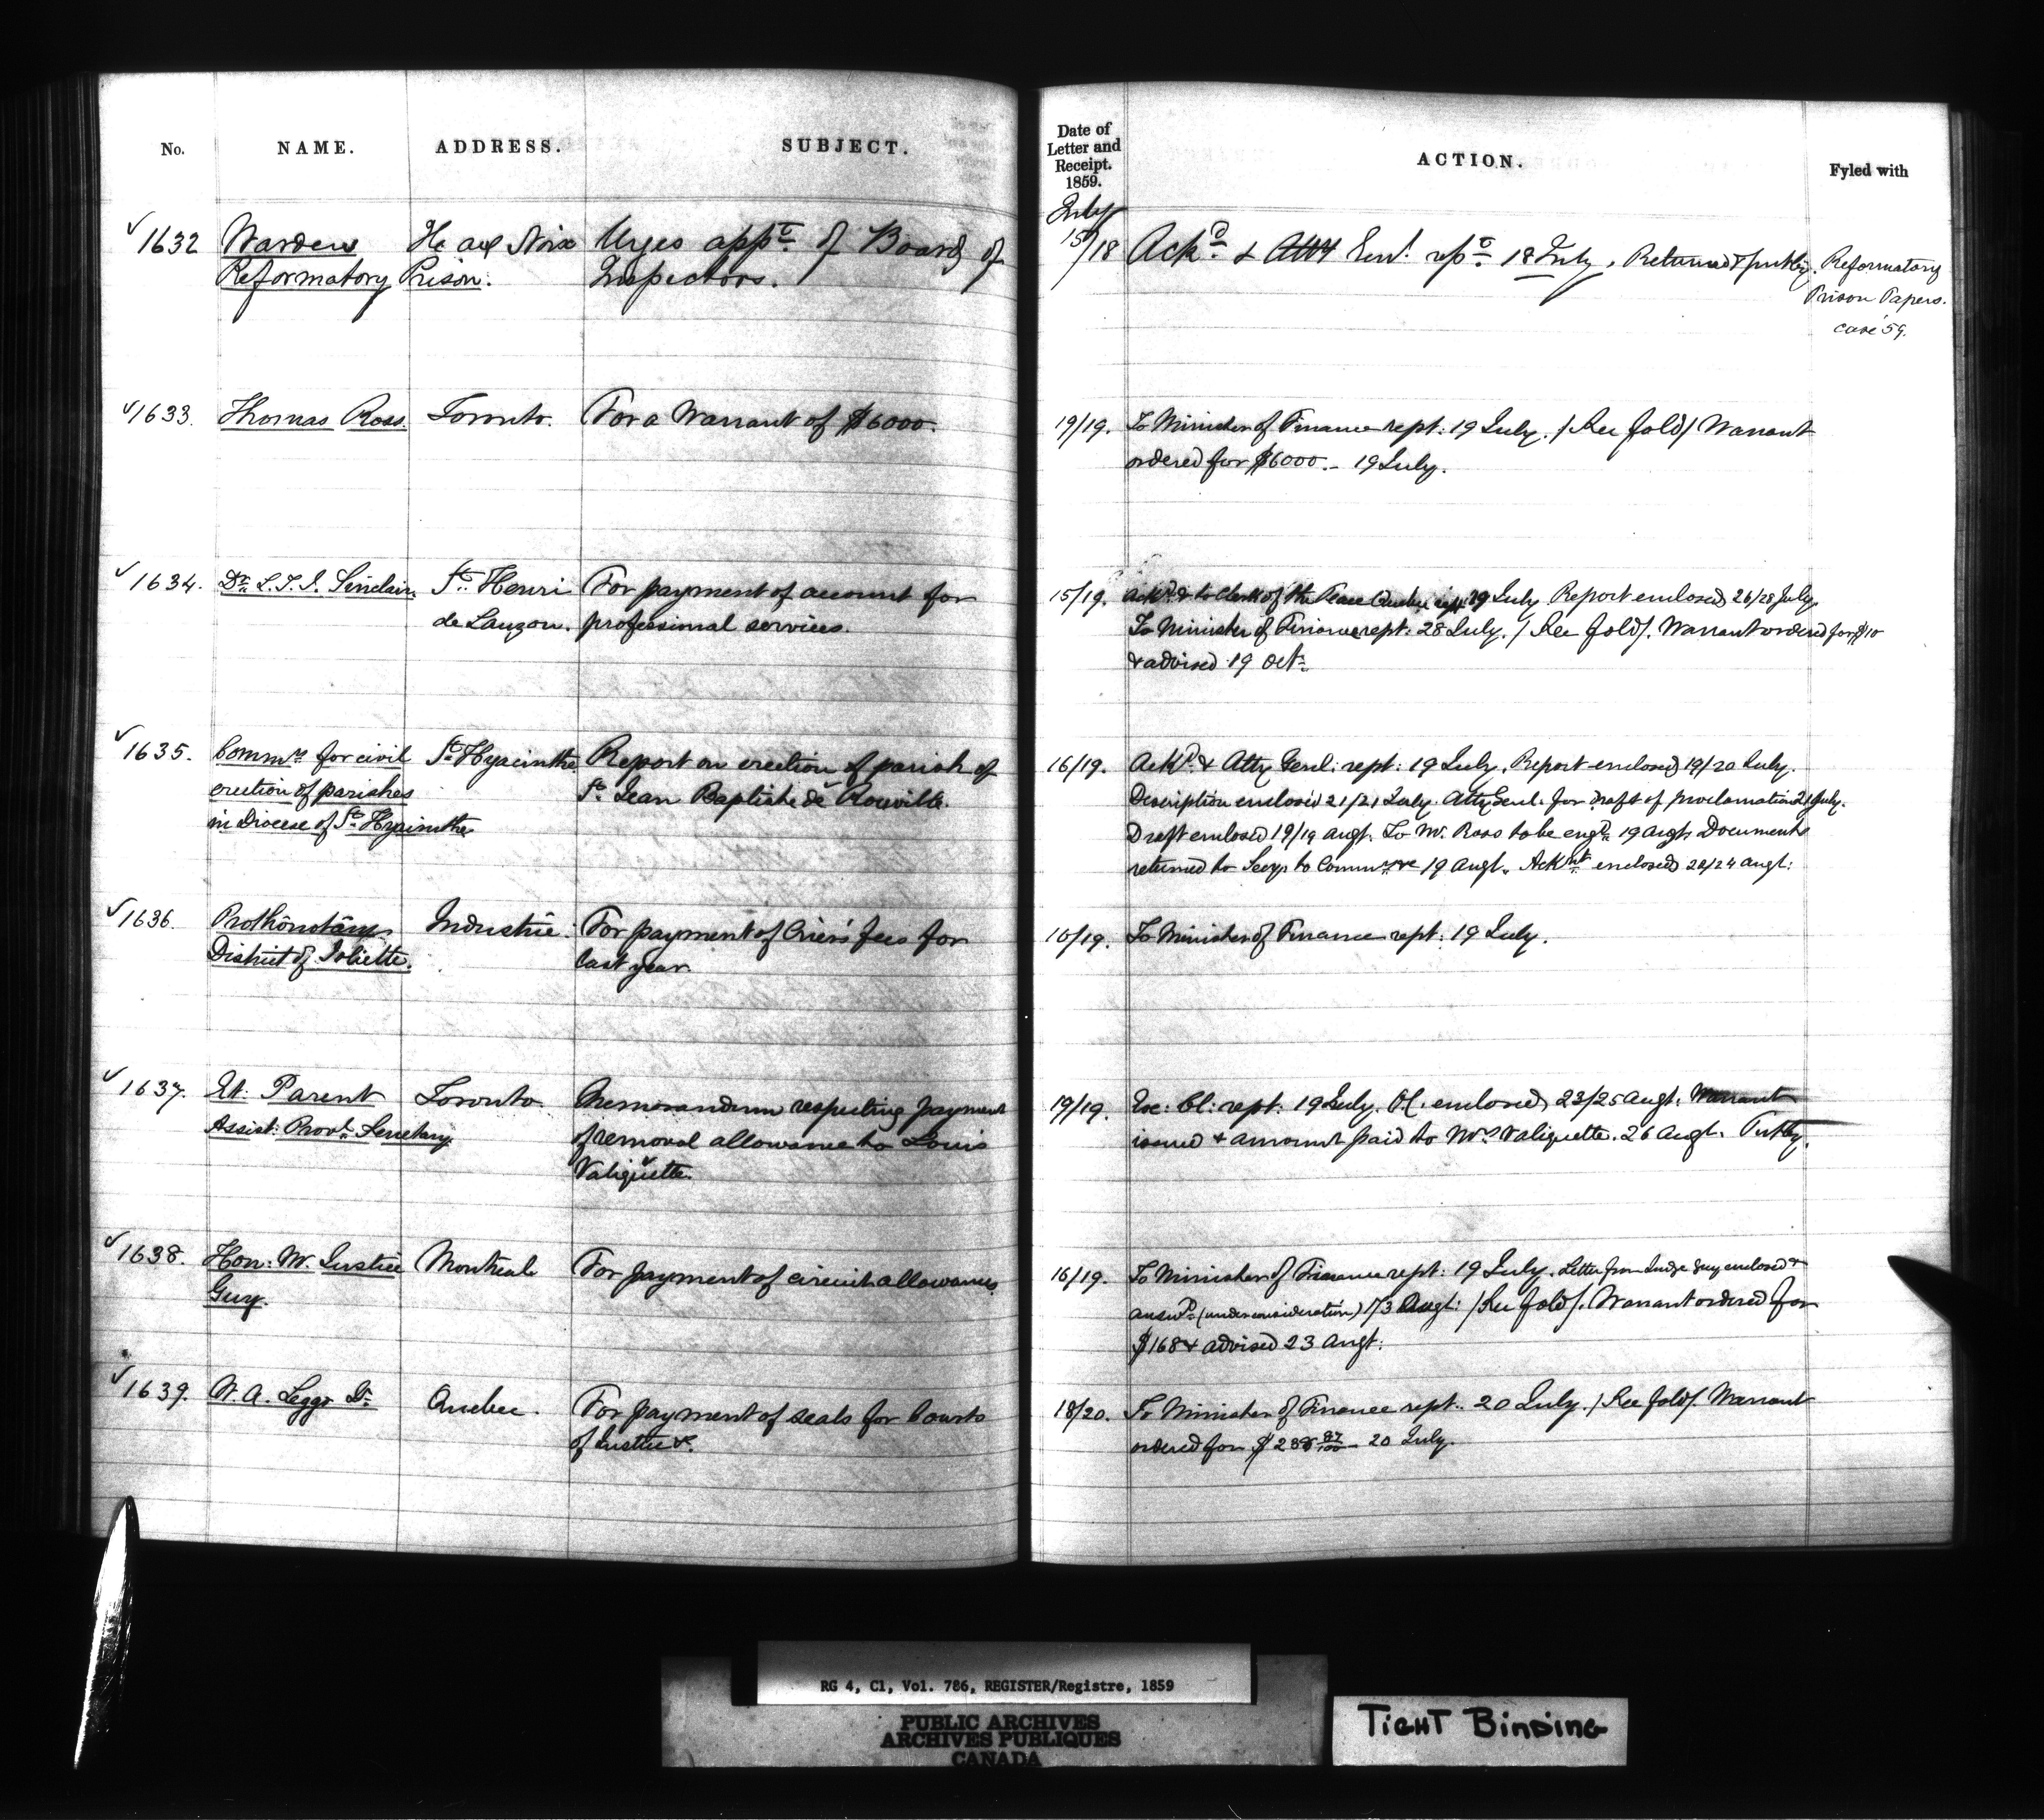 No. NAME. ADDRESS. SUBJECT.
✓1632 Warden Ile aux Noix Urges appt of Board of
Reformatory Prison. Inspectors.
✓1633. Thomas Ross. Toronto. For a Warrant of $6000.
✓1634. Dr. L. T. I. Sinclair St. Henri For payment of account for
de Lauzon. professional services.
✓1635. Commrs for civil St. Hyacinthe Report on erection of parish of
erection of parishes St. Jean Baptiste de Rouville.
in Diocese of St. Hyacinthe
✓1636. Prothonotary Industrie. For payment of Crier's fees for
District of Joliette. last year
✓1637. Et. Parent Toronto. Memorandum respecting payment
Assist: Provl. Secretary. of removal allowance to Louis
Valiquette.
✓1638. Hon: Mr. Justice Montreal For payment of circuit allowances
Guy.
✓1639. W. A. Leggo Quebec. For payment of seals for Courts
of Justice &c.
Date of Letter and Receipt. 1859. ACTION. Fyled with
July
15/18 Ackd. & Atty Genl. rept. 18 July. Returned & put by. Reformatory
Prison Papers.
case '59.
19/19. To Minister of Finance rept: 19 July. / See fold / Warrant
ordered for $6000.– 19 July.
15/19. Ackd. & to Clerk of the Peace Quebec rept 19 July Report enclosed 26/28 July.
To Minister of Finance rept: 28 July. / See fold /. Warrant ordered for $10
& advised 19 Oct.
16/19. Ackd. & Atty Genl: rept: 19 July. Report enclosed 19/20 July.
Description enclosed 21/21 July. Atty Genl. for draft of proclamation 21 July.
Draft enclosed 19/19 Augt. To Mr. Ross to be engd. 19 Augt. Documents
returned to Secy to Commrs 19 Augt. Ackt. enclosed 22/24 Augt:
16/19. To Minister of Finance rept: 19 July.
19/19. Exe: Cl: rept: 19 July. O.C. enclosed 23/25 Augt. Warrant
issued & amount paid to Mr. Valiquette. 26 Augt. Put by.
16/19. To Minister of Finance rept: 19 July. Letter from Judge Guy enclosed &
answd. (under consideration) 1/3 Augt: / See fold /. Warrant ordered for
$168 & advised 23 Augt:
18/20. To Minister of Finance rept. 20 July. / See fold /. Warrant
ordered for 87/100 – 20 July.
RG 4, C1, Vol. 786, REGISTER/Registre, 1859
PUBLIC ARCHIVES
ARCHIVES PUBLIQUES
CANADA
TIGHT BINDING